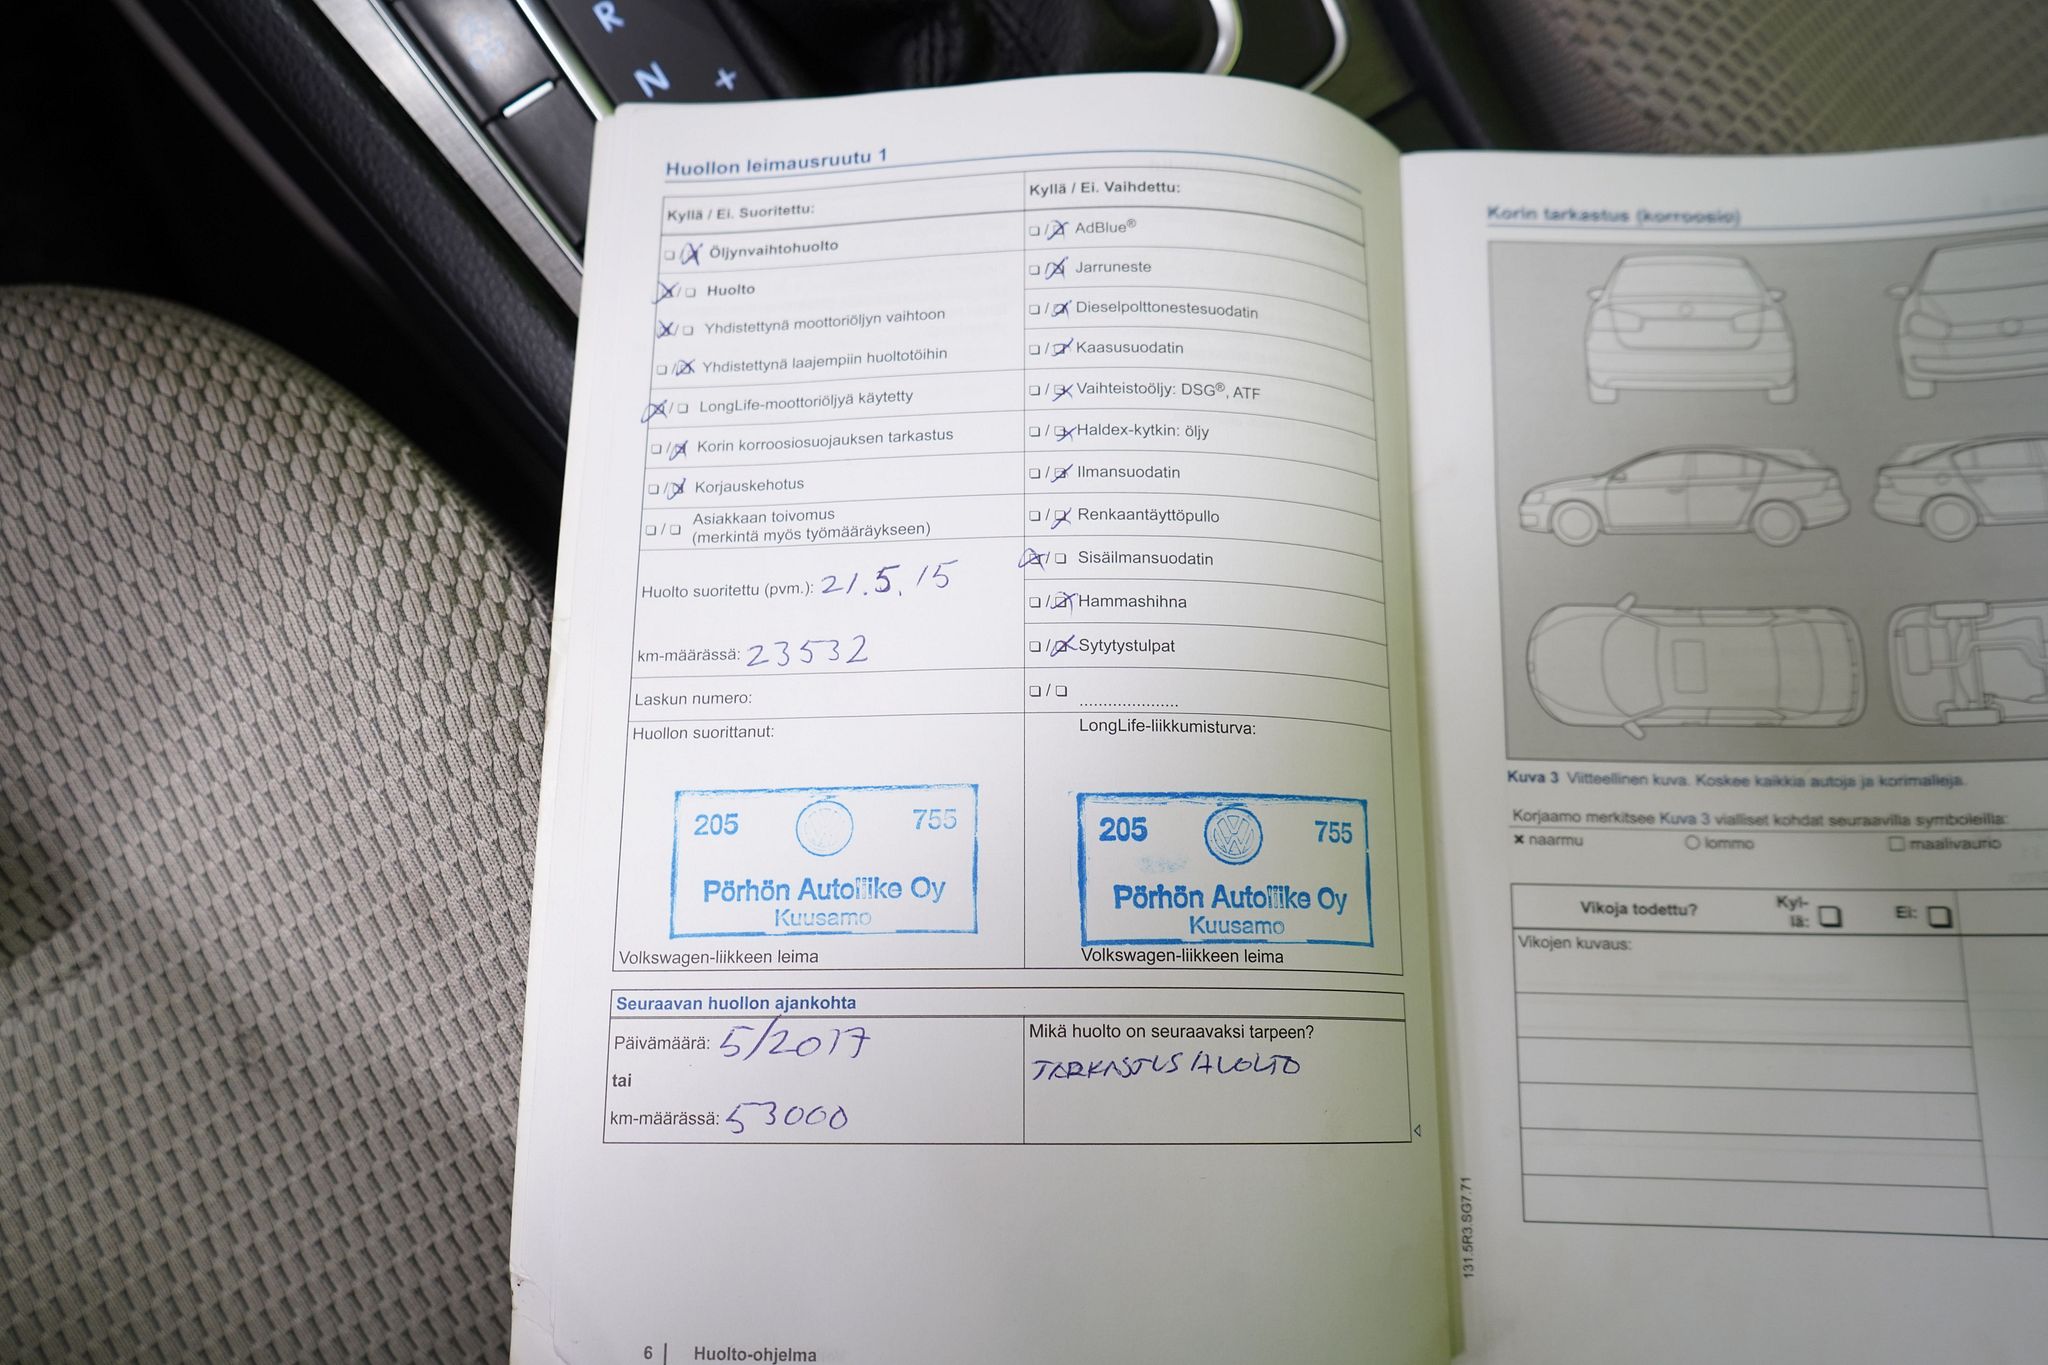 R
N +
Huollon leimausruutu 1
Kyllä / Ei. Suoritettu:
☐ / ☒ Öljynvaihtohuolto
☒ / ☐ Huolto
☒ / ☐ Yhdistettynä moottoriöljyn vaihtoon
☐ / ☒ Yhdistettynä laajempiin huoltotöihin
☒ / ☐ LongLife-moottoriöljyä käytetty
☐ / ☒ Korin korroosiosuojauksen tarkastus
☐ / ☒ Korjauskehotus
☐ / ☐ Asiakkaan toivomus
(merkintä myös työmääräykseen)
Huolto suoritettu (pvm.): 21.5.15
km-määrässä: 23532
Laskun numero:
Huollon suorittanut:
205 755
Pörhön Autoliike Oy
Kuusamo
Volkswagen-liikkeen leima
Kyllä / Ei. Vaihdettu:
☐ / ☒ AdBlue®
☐ / ☒ Jarruneste
☐ / ☒ Dieselpolttonestesuodatin
☐ / ☒ Kaasusuodatin
☐ / ☒ Vaihteistoöljy: DSG®, ATF
☐ / ☒ Haldex-kytkin: öljy
☐ / ☒ Ilmansuodatin
☐ / ☒ Renkaantäyttöpullo
☒ / ☐ Sisäilmansuodatin
☐ / ☒ Hammashihna
☐ / ☒ Sytytystulpat
☐ / ☐ .....................
LongLife-liikkumisturva:
205 VW 755
Pörhön Autoliike Oy
Kuusamo
Volkswagen-liikkeen leima
Seuraavan huollon ajankohta
Päivämäärä: 5/2017
tai
km-määrässä: 53000
Mikä huolto on seuraavaksi tarpeen?
TARKASTUS HUOLTO
6 | Huolto-ohjelma
Korin tarkastus (korroosio)
Kuva 3 Viitteellinen kuva. Koskee kaikkia autoja ja korimalleja.
Korjaamo merkitsee Kuva 3 vialliset kohdat seuraavilla symboleilla:
× naarmu ○ lommo ☐ maalivaurio
Vikoja todettu? Kyl-
lä: ☐ Ei: ☐
Vikojen kuvaus:
131.5R3.SG7.71